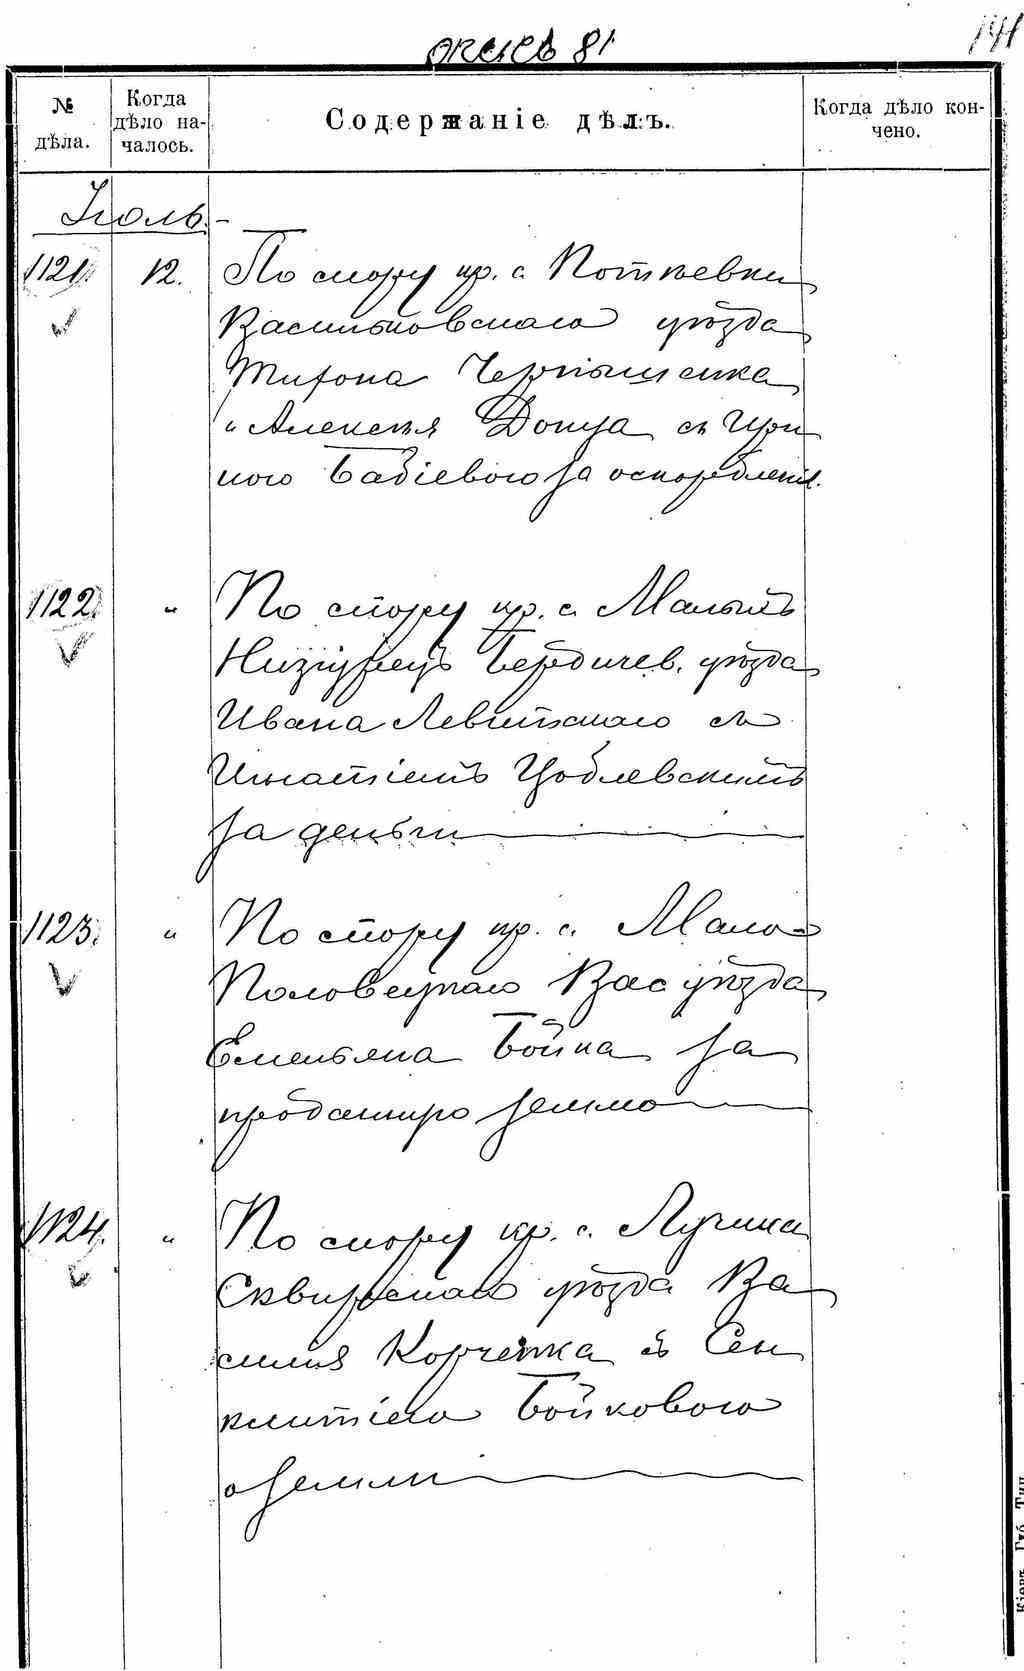 № дѣла.
Когда дѣло на-
чалось.
Содержаніе дѣлъ.
Когда дѣло кон-
чено.
Іюль.-
1121. 12. По спору кр. с.
Васильковскаго уѣзда
Мирона Чернышенка
и Алексѣя Донца съ Ири
ною Бабіевою за оскорбленіе.
1122. " По спору кр. с. Малыхъ
Низгурецъ Бердичев. уѣзда
Ивана Левитскаго съ
Игнатіемъ Цоблевскимъ
за деньги
1123. " По спору кр. с. Мало-
Половецкаго Вас уѣзда
Емельяна Бойка за
проданную землю
1124. " По спору кр. с. Лучина
Сквирскаго уѣзда Ва
силія Корченка съ Син
клитіею Бойковою
о земли